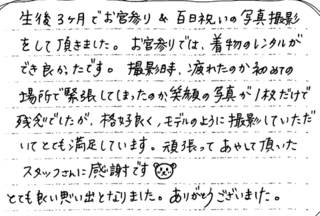 生後3ヶ月でお宮参り&百日祝いの写真撮影
をして頂きました。お宮参りでは、着物のレンタルが
でき良かったです。撮影時、疲れたのか初めての
場所で緊張してしまったのか、笑顔の写真が1枚だけで
残念でしたが、格好良く、モデルのように撮影していただ
いてとても満足しています。頑張ってあやして頂いた
スタッフさんに感謝です
とても良い思い出となりました。ありがとうございました。